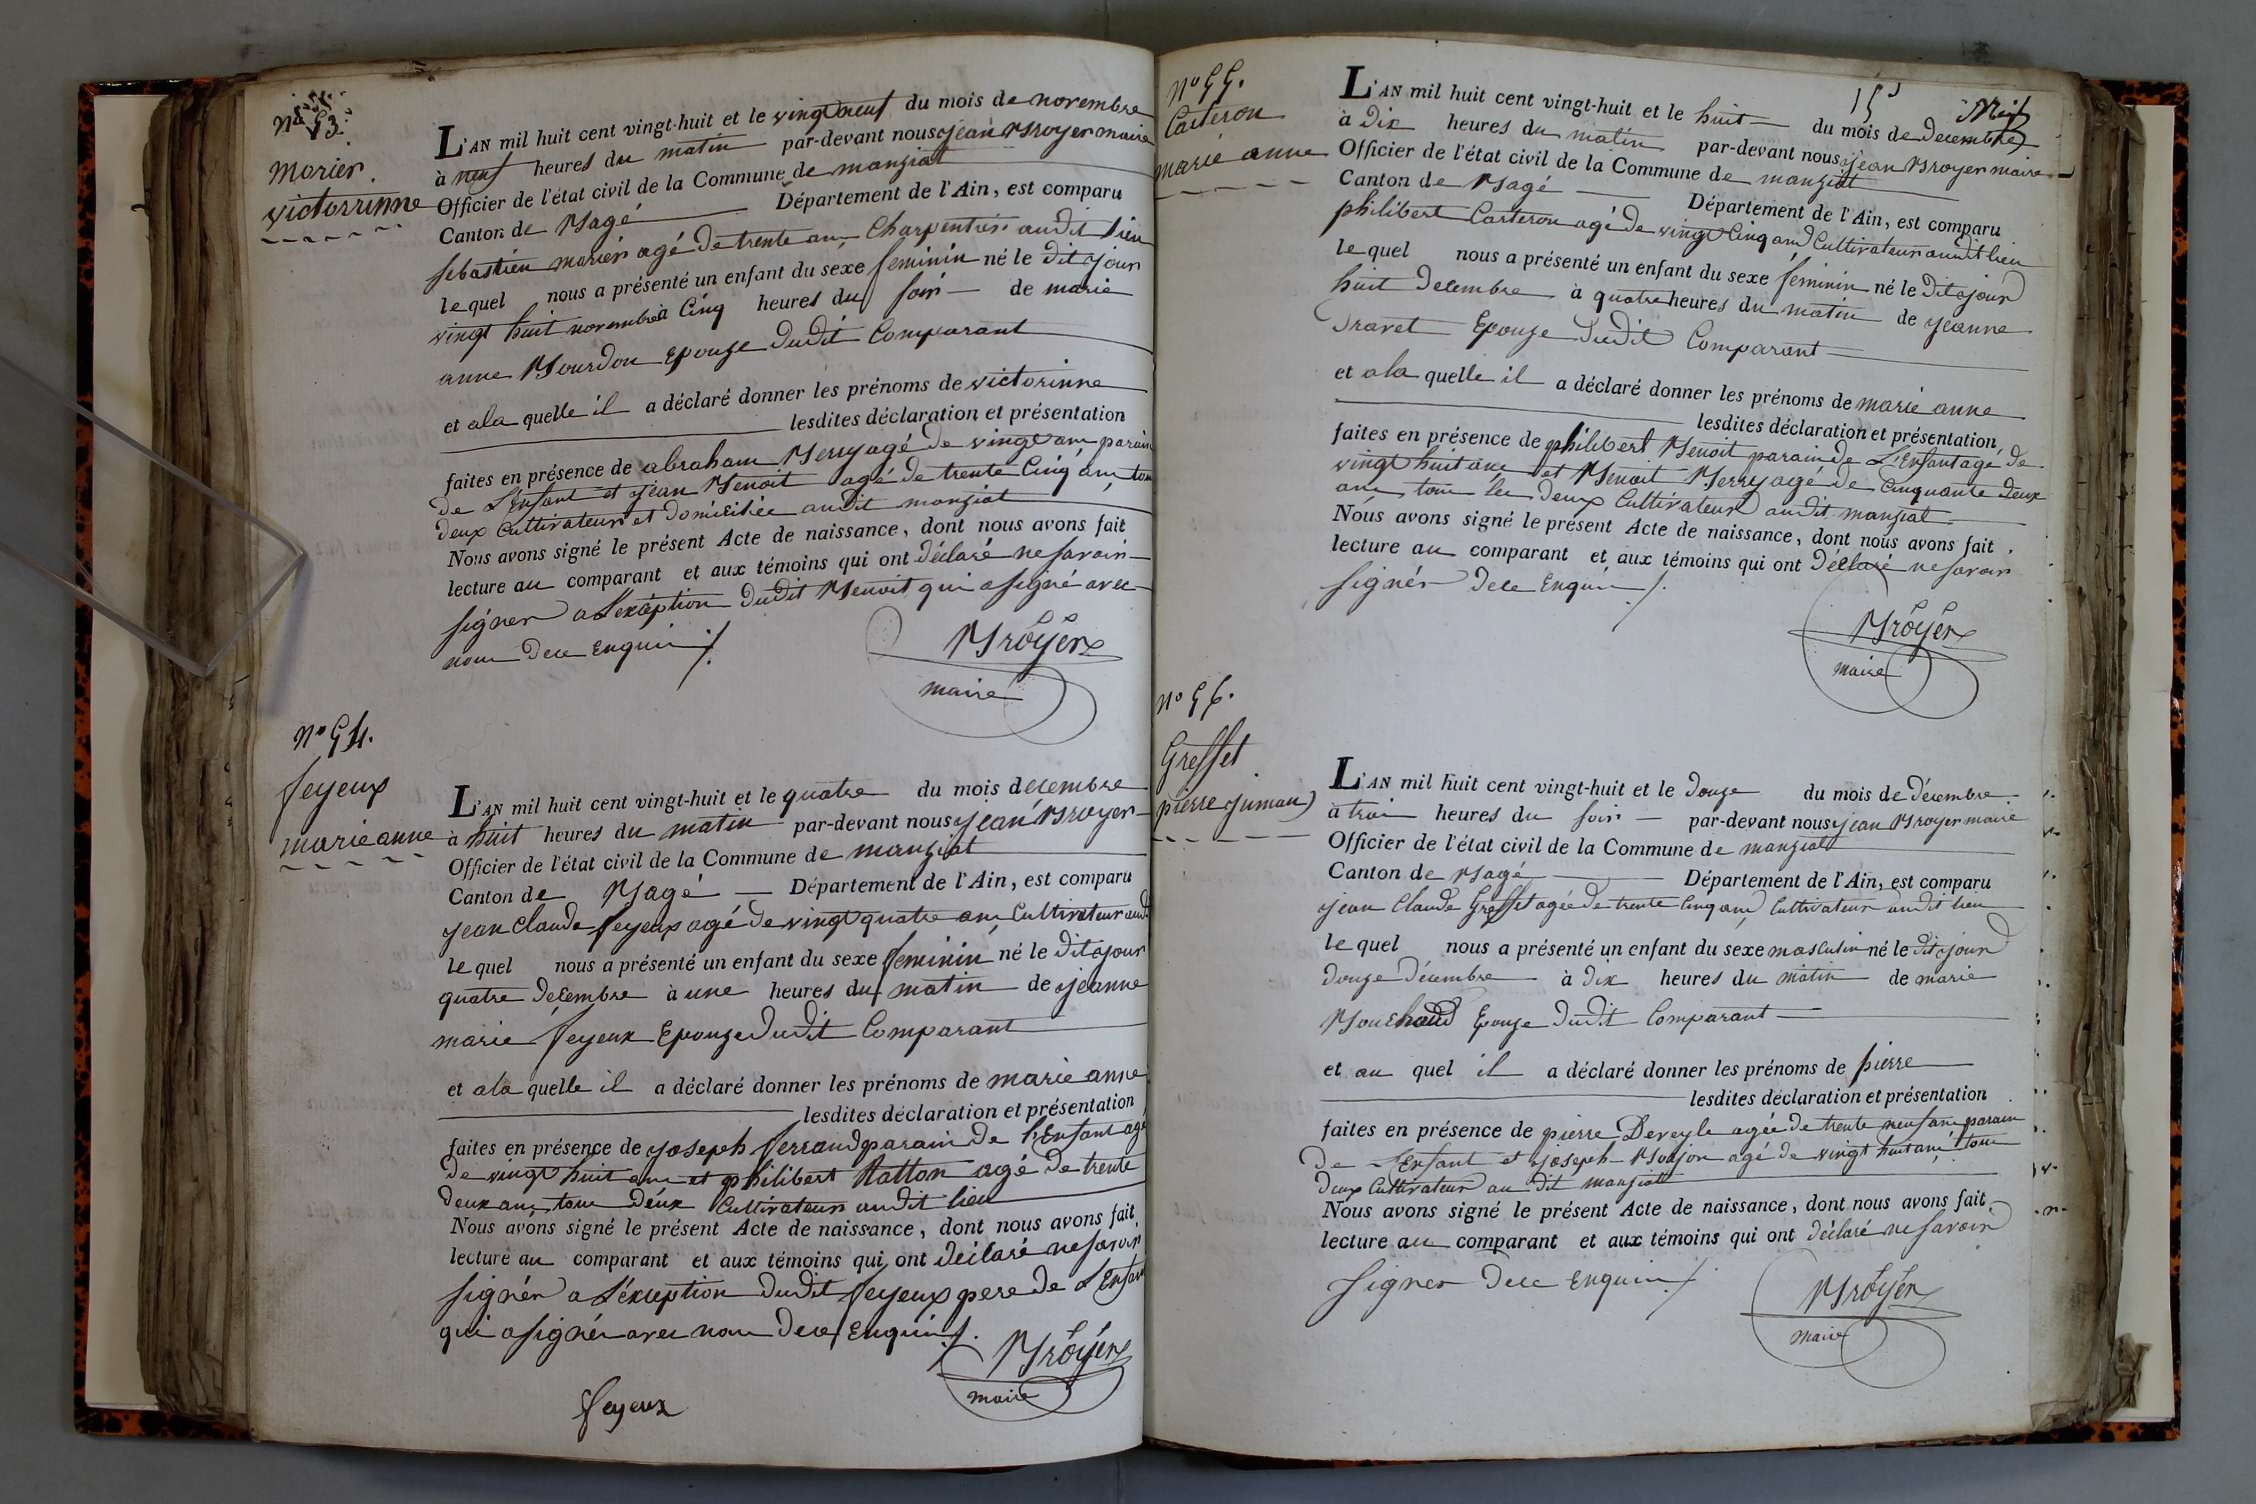 N° 53.
morier.
victorinne
L'AN mil huit cent vingt-huit et le vingt neuf du mois de novembre
à neuf heures du matin par-devant nous jean Broyer maire
Officier de l'état civil de la Commune de manziat
Canton de Bagé Département de l'Ain, est comparu
sebastien morier agé de trente ans Charpentier audit lieu
le quel nous a présenté un enfant du sexe feminin né le dit jour
vingt huit novembre à Cinq heures du soir de marie
anne Bourdon Epouze dudit Comparant
et a la quelle il a déclaré donner les prénoms de victorinne
lesdites déclaration et présentation
faites en présence de abraham Berry agé de vingt ans parain
de L'Enfant et jean Benoit agé de trente Cinq ans tou
deux Cultivateur et domiciliée audit manziat
Nous avons signé le présent Acte de naissance, dont nous avons fait
lecture au comparant et aux témoins qui ont déclaré ne savoir
signer a L'exception dudit Benoit qui a signé avec
nous de ce Enquis ./.
Broyer
maire
N° 54.
feyeux
marie anne
L'AN mil huit cent vingt-huit et le quatre du mois decembre
à huit heures du matin par-devant nous jean Broyer
Officier de l'état civil de la Commune de manziat
Canton de Bagé Département de l'Ain, est comparu
jean Claude feyeux agé de vingt quatre ans Cultivateur audi
le quel nous a présenté un enfant du sexe feminin né le dit jour
quatre decembre à une heures du matin de jeanne
marie feyeux Epouze dudit Comparant
et a la quelle il a déclaré donner les prénoms de marie anne
lesdites déclaration et présentation
faites en présence de joseph ferrand parain de l'Enfant agé
de vingt huit ans et philibert Ratton agé de trente
deux ans tous deux Cultivateur audit lieu
Nous avons signé le présent Acte de naissance, dont nous avons fait
lecture au comparant et aux témoins qui ont déclaré ne savoir
signer a L'exception dudit feyeux pere de L'Enfant
qui a signer avec nous de ce Enquis ./.
Broyer
maire
feyeux
N° 55.
Carteron
marie anne
L'AN mil huit cent vingt-huit et le huit du mois de decembre
à dix heures du matin par-devant nous jean Broyer maire
Officier de l'état civil de la Commune de manziat
Canton de Bagé Département de l'Ain, est comparu
philibert Carteron agé de vingt Cinq ans Cultivateur audit lieu
le quel nous a présenté un enfant du sexe feminin né le dit jour
huit decembre à quatre heures du matin de jeanne
Epouze dudit Comparant
et a la quelle il a déclaré donner les prénoms de marie anne
lesdites déclaration et présentation
faites en présence de philibert Benoit parain de L'Enfant agé de
vingt huit ans et Benoit Berry agé de Cinquante deux
ans tous les deux Cultivateur audit manziat
Nous avons signé le présent Acte de naissance, dont nous avons fait
lecture au comparant et aux témoins qui ont déclaré ne savoir
signer de ce Enquis ./.
Broyer
maire
N° 56.
Greffet
pierre
L'AN mil huit cent vingt-huit et le douze du mois de décembre
à trois heures du soir par-devant nous jean Broyer maire
Officier de l'état civil de la Commune de manziat
Canton de Bagé Département de l'Ain, est comparu
jean Claude Greffet agée de trente Cinq ans Cultivateur audit lieu
le quel nous a présenté un enfant du sexe masculin né le dit jour
douze décembre à dix heures du matin de marie
Epouze dudit Comparant
et au quel il a déclaré donner les prénoms de pierre
lesdites déclaration et présentation
faites en présence de pierre Deveyle agée de trente neuf ans parain
de L'Enfant et joseph agé de vingt huit ans tous
deux Cultivateur au dit manziat
Nous avons signé le présent Acte de naissance, dont nous avons fait
lecture au comparant et aux témoins qui ont déclaré ne savoir
signer de ce Enquis ./.
Broyer
maire